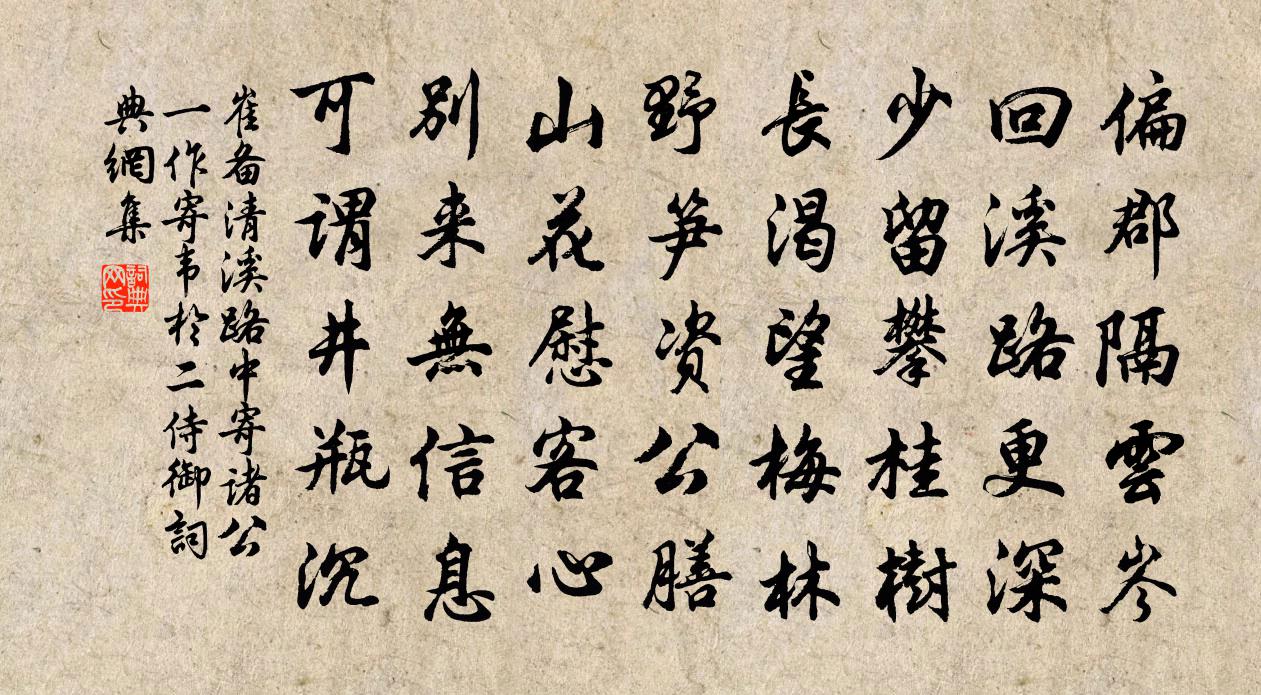 偏郡隔雲岑
回溪路更深
少留攀桂樹
長渴望梅林
野笋資公膳
山花慰客心
別来無信息
可謂井瓶沉
崔备清溪路中寄诸公
一作寄韦於二侍御詞
典網集
詞典
网印